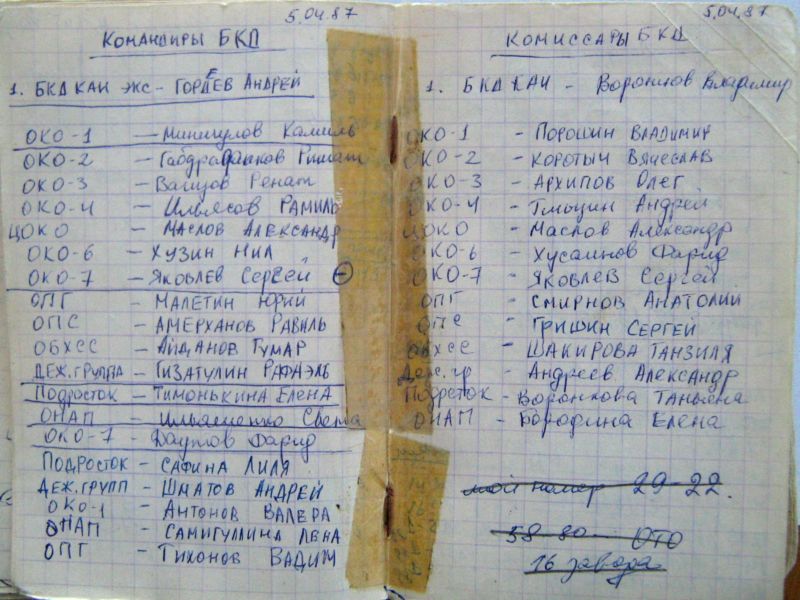 5.04.87
КОМАНДИРЫ БКД
1. БКД КАИ ЭКС - ГОРДЕЕВ АНДРЕЙ
ОКО-1 — Миннулов Камиль
ОКО-2 — Римат
ОКО-3 — Вагизов Ренат
ОКО-4 — Ильясов РАМИЛЬ
ЦОКО — МАСЛОВ АЛЕКСАНДР
ОКО-6 — ХУЗИН НИЛ
ОКО-7 — ЯКОВЛЕВ СЕРГЕЙ
ОПГ — МАЛЕТИН ЮРИЙ
ОПС — АМЕРХАНОВ РАВИЛЬ
ОБХСС — ГУМАР
ДЕЖ.ГРУППА — ГИЗАТУЛИН РАФАЭЛЬ
ПОДРОСТОК — ТИМОНЬКИНА ЕЛЕНА
ОНАП — Ильяшенко Света
ОКО-7 — Фарид
ПОДРОСТОК — САФИНА ЛИЛЯ
ДЕЖ.ГРУПП — ШМАТОВ АНДРЕЙ
ОКО-1 — АНТОНОВ ВАЛЕРА
ОНАП — САМИГУЛЛИНА ЛЕНА
ОПГ — ТИХОНОВ ВАДИМ
5.04.87
КОМИССАРЫ БКД
1. БКД КАИ - Воронцов Владимир
ОКО-1 - ПОРОШИН ВЛАДИМИР
ОКО-2 - КОРОТЫЧ ВЯЧЕСЛАВ
ОКО-3 - АРХИПОВ ОЛЕГ
ОКО-4 - Андрей
ЦОКО - Маслов Александр
ОКО-6 - Хусаинов Фарид
ОКО-7 - ЯКОВЛЕВ Сергей
ОПГ - СМИРНОВ АНАТОЛИЙ
ОПС - ГРИШИН СЕРГЕЙ
ОБХСС - ШАКИРОВА ТАНЗИЛЯ
Деж.гр - Андреев АЛЕКСАНДР
Подросток - Воронкова Татьяна
ОНАП - Бородина Елена
мой номер 29-22.
58-80- ОТО
16 завода